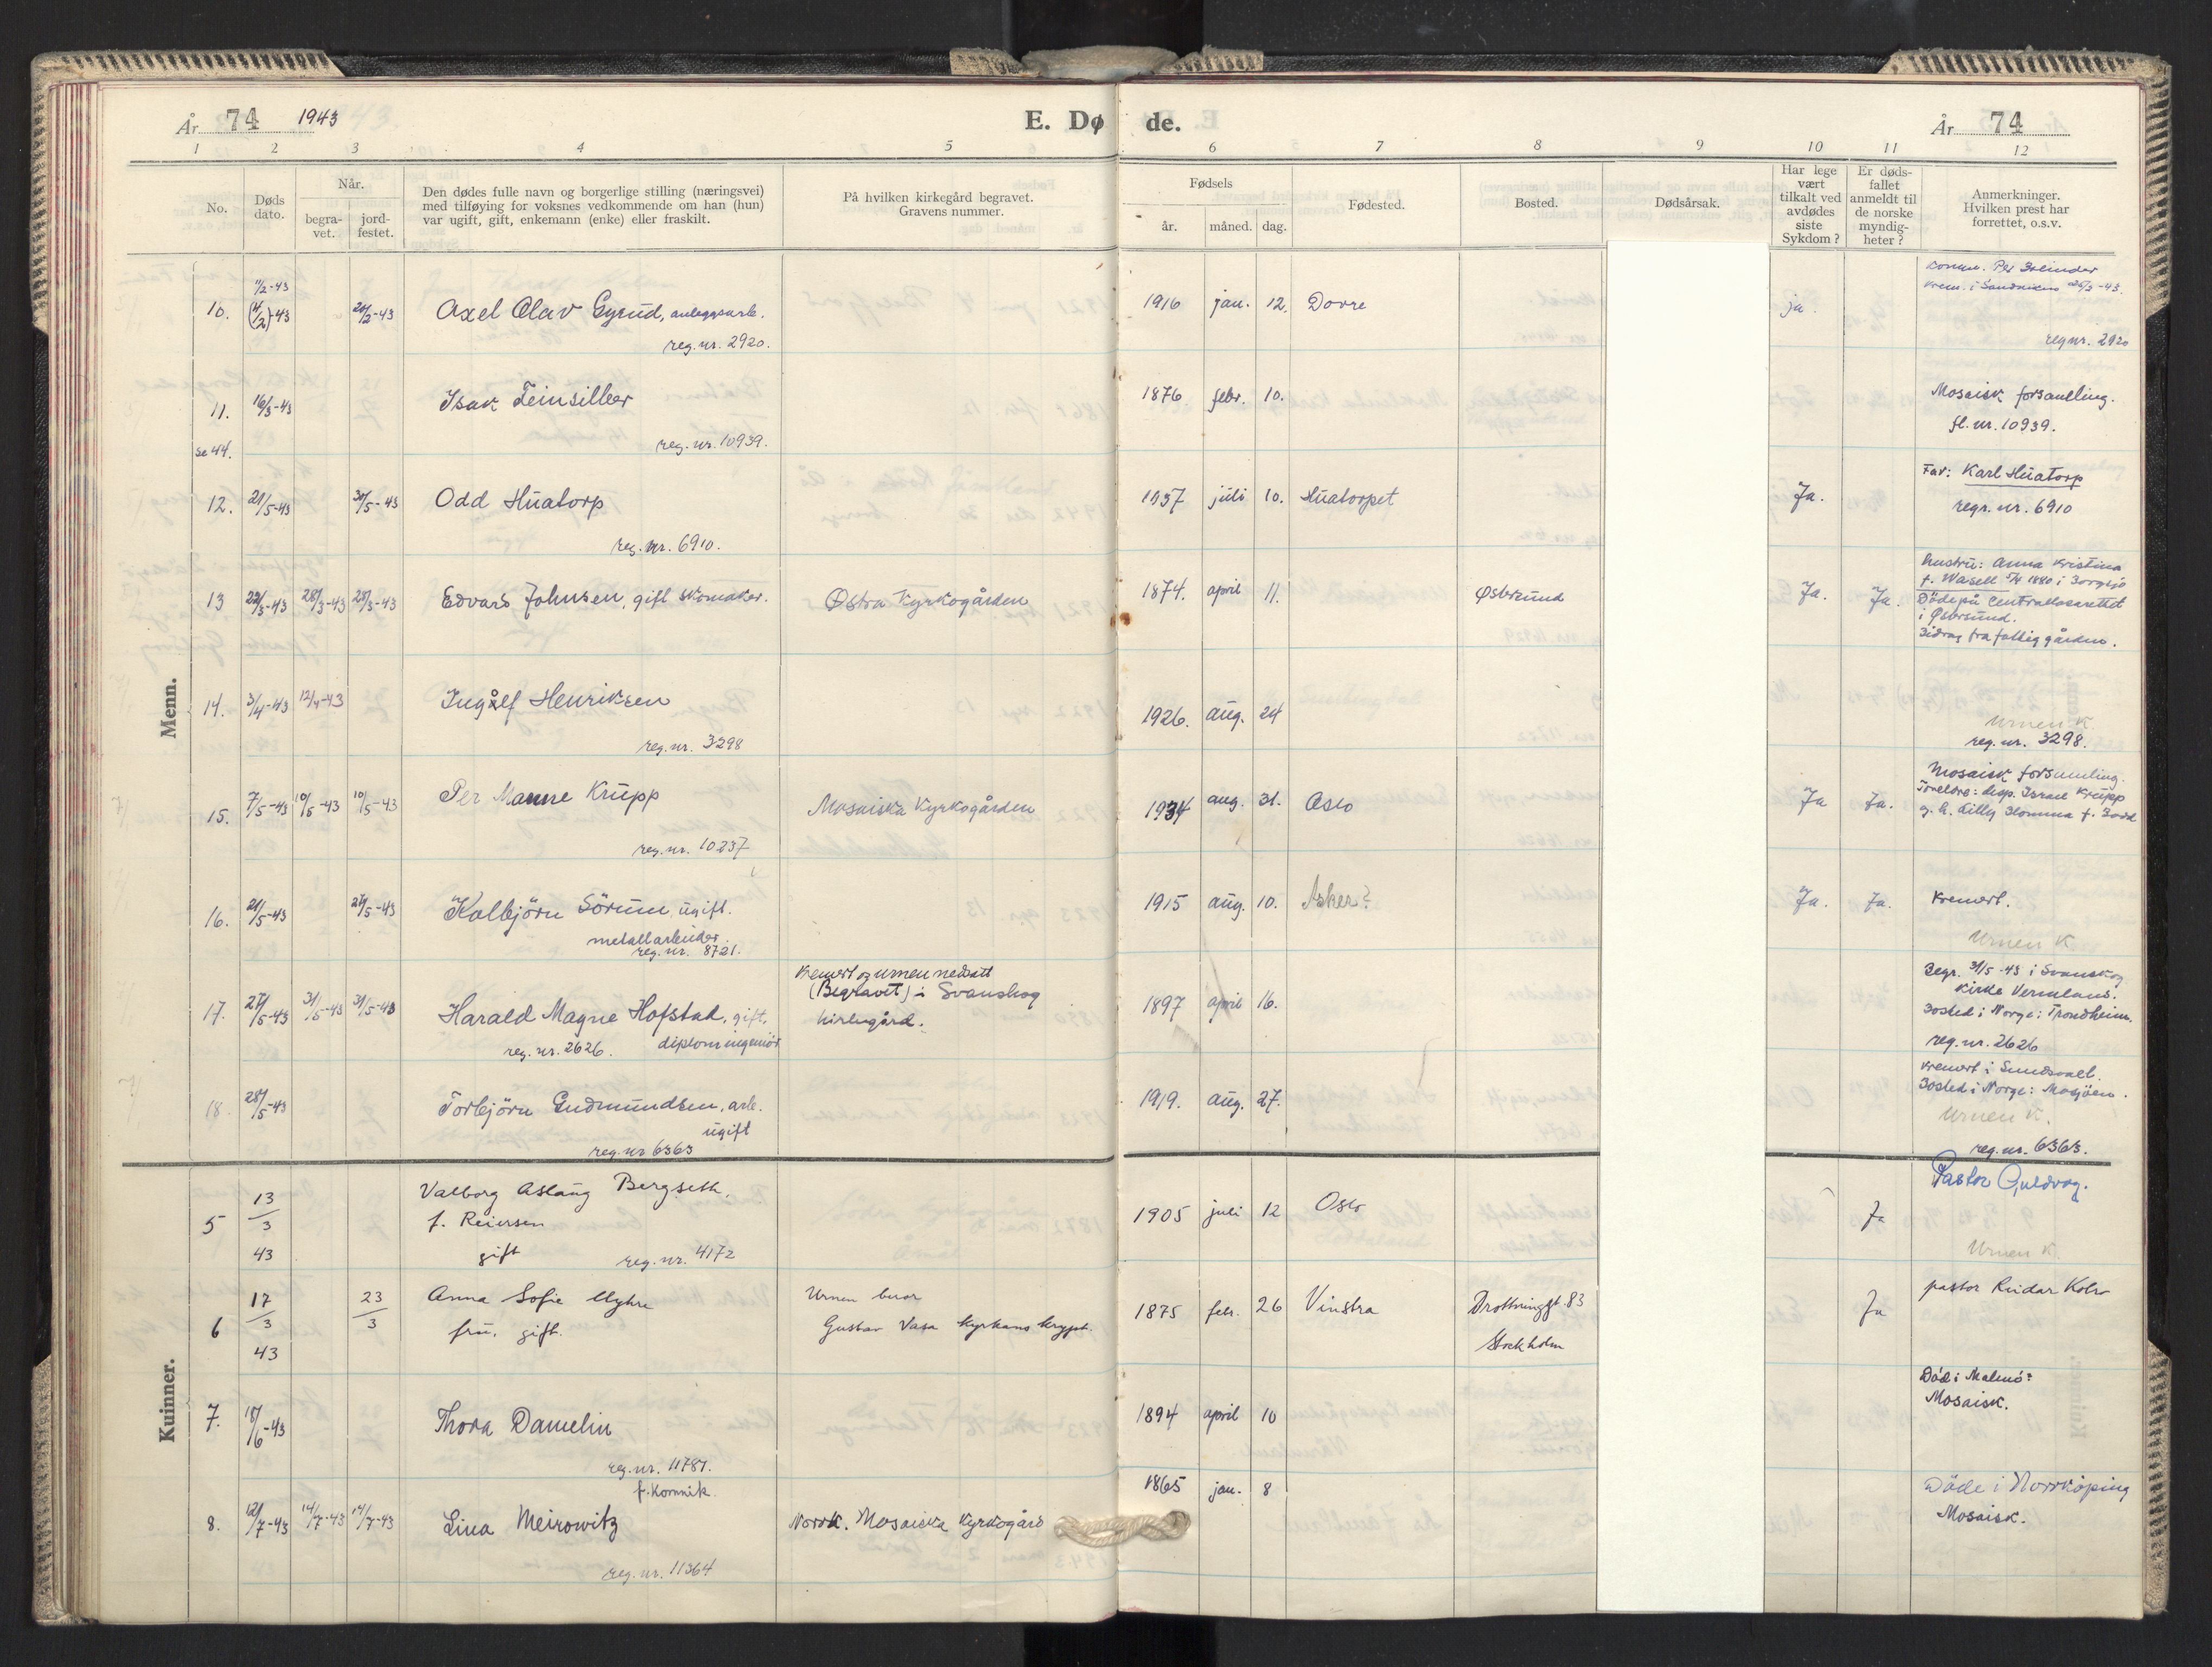 År 74 1943
E. Dø de.
År 74
1 2 3 4 5 6 7 8 9 10 11 12
No.
Døds dato.
Når.
begra- vet.
jord- festet.
Den dødes fulle navn og borgerlige stilling (næringsvei)
med tilføying for voksnes vedkommende om han (hun)
var ugift, gift, enkemann (enke) eller fraskilt.
På hvilken kirkegård begravet.
Gravens nummer.
Fødsels
år. måned. dag.
Fødested.
Bosted.
Dødsårsak.
Har lege
vært
tilkalt ved
avdødes
siste
Sykdom?
Er døds-
fallet
anmeldt til
de norske
myndig-
heter?
Anmerkninger.
Hvilken prest har
forrettet, o.s.v.
Menn.
10. Axel Olav Gyrud, anleggsarb.
reg. nr. 2920.
1916 jan. 12. Dovre ja.
reg nr. 2920
11. 16/3-43 Isak Feinsilber
reg. nr. 10939.
se 44.
1876 febr. 10.
Mosaisk forsamling.
fl. nr. 10939.
12. 21/5-43 Odd Huatorp
reg. nr. 6910.
1937 juli 10. Huatorpet Ja.
Far: Karl Huatorp
regr. nr. 6910
13 Edvard Johnsen, gift skomaker. Østra Kyrkogården
1874. april 11. Østersund Ja. Ja.
hustru: Anna Kristina
f. Wasell 1880 i Borgsjö
Døde på Centrallasarettet
i Østersund.
Bidrag fra fattiggården.
14. 3/4-43 12/4-43 Ingålf Henriksen
reg. nr. 3298
1926. aug. 24
Urnen K
reg. nr. 3298.
15. 7/5-43 10/5-43 10/5-43 Per Manne Krupp Mosaiska Kyrkogården
reg. nr. 10237
1934 aug. 31. Oslo Ja Ja.
Mosaisk forsamling.
Foreldre: disp. Israel Krupp
16. 21/5-43 27/5-43 Kolbjörn Sörum, ugift.
metallarbeider
reg. nr. 8721.
1915 aug. 10. Asker? Ja. Ja. Kremert.
Urnen K.
17. 27/5-43 31/5-43 31/5-43 Harald Magne Hofstad, gift,
diplomingeniør
reg. nr. 2626.
Kremert og urnen nedsatt
(Begravet) i Svanskog
kirkegård.
1897 april 16.
Begr. 31/5-43 i Svanskog
kirke Vermland.
Bosted i Norge: Trondheim.
reg. nr. 2626
18. 28/5-43 Torbjörn Gudmundsen, arb.
ugift
reg. nr 6363
1919. aug. 27.
Kremert i Sundsvall.
Bosted i Norge: Mosjöen.
Urnen K.
reg. nr. 6363.
Kuinner.
5 13/3 43 Valborg Aslaug Bergseth,
f. Reiersen
gift reg. nr. 4172
1905 juli 12 Oslo Ja
Pastor Guldvog.
Urnen K.
6 17/3 43 23/3 Anna Sofie Myhre
fru, gift.
Urnen beror
Gustav Vasa kyrkans krypt.
1875 febr. 26 Vinstra Drottninggt. 83
Stockholm
Ja pastor Reidar Kobro
7. 18/6-43 Thora Damelin
reg. nr. 11787.
1894 april 10
Död i Malmö?
Mosaisk.
f. Komnik
8. 12/7-43 14/7-43 14/7-43 Lina Meirowitz Norrk. Mosaiska Kyrkogård
reg. nr. 11364
1865 jan. 8
Döde i Norrköping
Mosaisk.